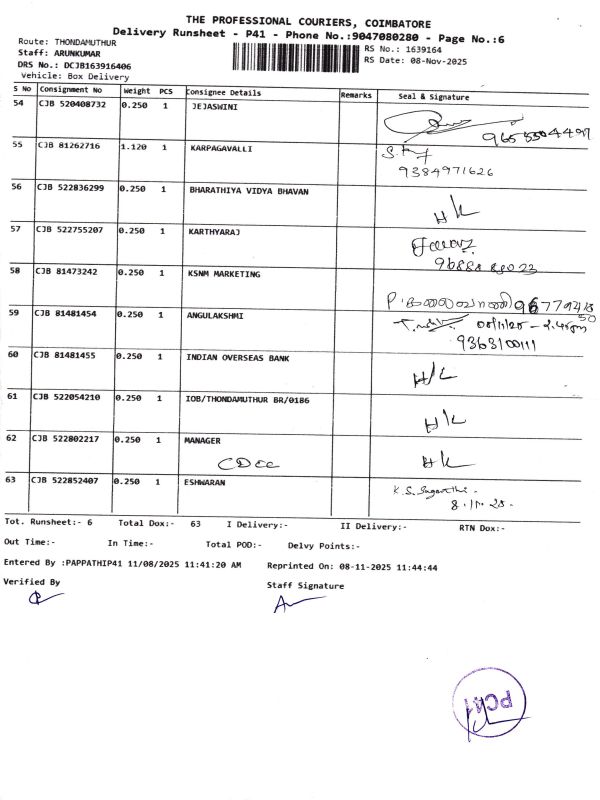 THE PROFESSIONAL COURIERS, COIMBATORE
Delivery Runsheet - P41 - Phone No.:9047080280 - Page No.:6
Route: THONDAMUTHUR
RS No.: 1639164
Staff: ARUNKUMAR
RS Date: 08-Nov-2025
DRS No.: DCJB163916406
Vehicle: Box Delivery
S No Consignment No Weight PCS Consignee Details Remarks Seal & Signature
54 CJB 520408732 0.250 1 JEJASWINI
55 CJB 81262716 1.120 1 KARPAGAVALLI
9384971626
56 CJB 522836299 0.250 1 BHARATHIYA VIDYA BHAVAN H/K
57 CJB 522755207 0.250 1 KARTHYARAJ
58 CJB 81473242 0.250 1 KSNM MARKETING
P. கலைவாணி
59 CJB 81481454 0.250 1 ANGULAKSHMI 08/11/25 - 2.45pm
9363100111
60 CJB 81481455 0.250 1 INDIAN OVERSEAS BANK H/K
61 CJB 522054210 0.250 1 IOB/THONDAMUTHUR BR/0186 H/K
62 CJB 522802217 0.250 1 MANAGER H/K
CDCC
63 CJB 522852407 0.250 1 ESHWARAN K.S.
8.11.25.
Tot. Runsheet:- 6 Total Dox:- 63 I Delivery:- II Delivery:- RTN Dox:-
Out Time:- In Time:- Total POD:- Delvy Points:-
Entered By :PAPPATHIP41 11/08/2025 11:41:20 AM Reprinted On: 08-11-2025 11:44:44
Verified By Staff Signature